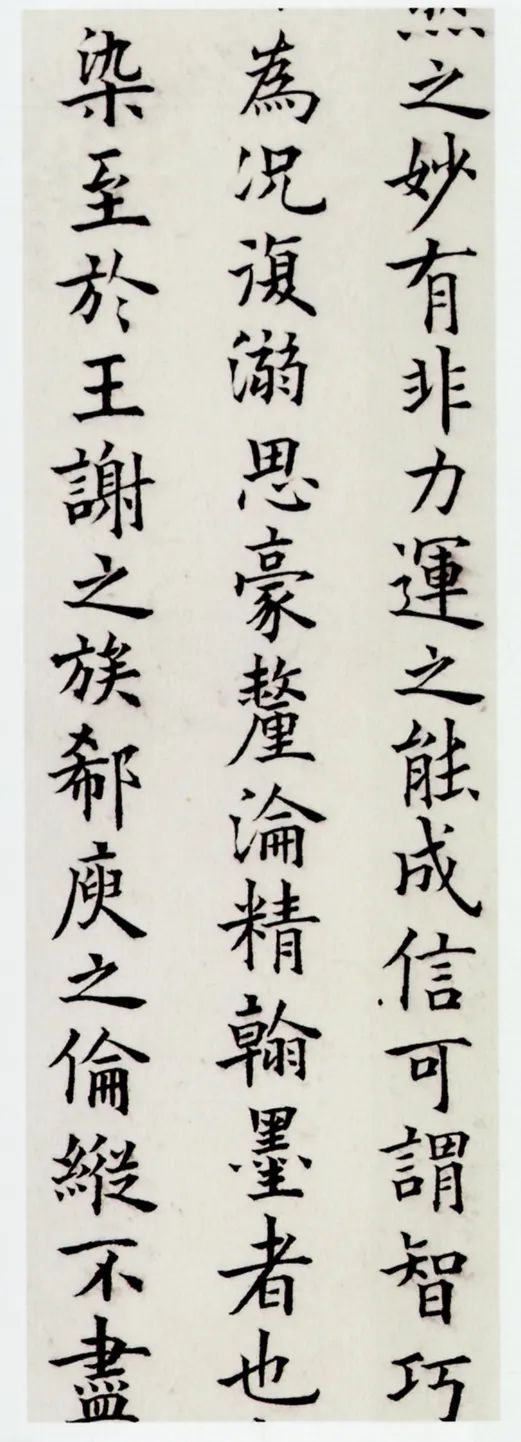 然之妙有非力運之能成信可謂智巧
為況復溺思豪釐淪精翰墨者也
染至於王謝之族郗庾之倫縱不盡